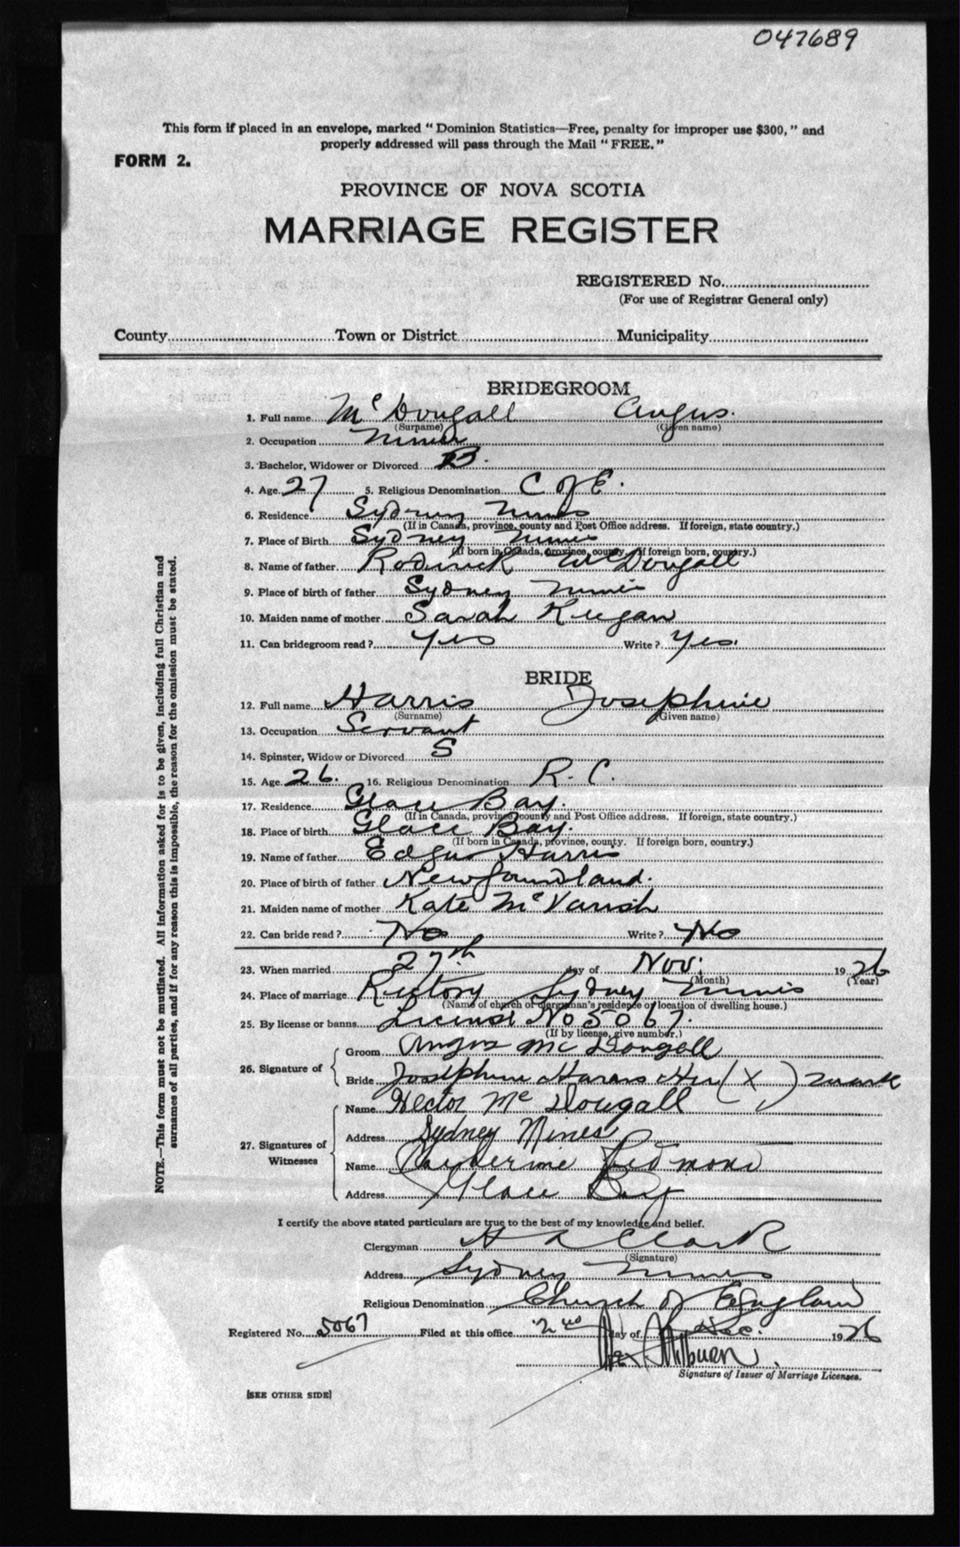 047689
This form if placed in an envelope, marked "Dominion Statistics—Free, penalty for improper use $300," and
properly addressed will pass through the Mail "FREE."
FORM 2.
PROVINCE OF NOVA SCOTIA
MARRIAGE REGISTER
REGISTERED No.
(For use of Registrar General only)
County Town or District Municipality
BRIDEGROOM
1. Full name McDougall Angus.
(Surname) (Given name)
2. Occupation Miner
3. Bachelor, Widower or Divorced B.
4. Age 27 5. Religious Denomination C of E.
6. Residence Sydney Mines
(If in Canada, province, county and Post Office address. If foreign, state country.)
7. Place of Birth Sydney Mines
(If born in Canada, province, county. If foreign born, country.)
8. Name of father Roderick McDougall
9. Place of birth of father Sydney Mines
10. Maiden name of mother Sarah Keegan
11. Can bridegroom read? Yes Write? Yes.
BRIDE
12. Full name Harris Josephine
(Surname) (Given name)
13. Occupation Servant
14. Spinster, Widow or Divorced S
15. Age 26. 16. Religious Denomination R. C.
17. Residence Glace Bay.
(If in Canada, province, county and Post Office address. If foreign, state country.)
18. Place of birth Glace Bay.
(If born in Canada, province, county. If foreign born, country.)
19. Name of father Edgar Harris
20. Place of birth of father Newfoundland.
21. Maiden name of mother Kate McVarish
22. Can bride read? No Write? No
23. When married 27th day of Nov. 1926
(Month) (Year)
24. Place of marriage Rectory Sydney Mines
(Name of church or clergyman's residence or location of dwelling house.)
25. By license or banns License No 5067.
(If by license, give number.)
26. Signature of
Groom Angus McDougall
Bride Josephine Harris Her (X) mark
27. Signatures of Witnesses
Name Hector McDougall
Address Sydney Mines
Name Catherine Redmond
Address Glace Bay
I certify the above stated particulars are true to the best of my knowledge and belief.
Clergyman H A Clark
(Signature)
Address Sydney Mines
Religious Denomination Church of England
Registered No. 5067 Filed at this office 2nd day of Dec. 1926
Milburn
Signature of Issuer of Marriage Licenses.
[SEE OTHER SIDE]
NOTE.—This form must not be mutilated. All information asked for is to be given, including full Christian and
surnames of all parties, and if for any reason this is impossible, the reason for the omission must be stated.